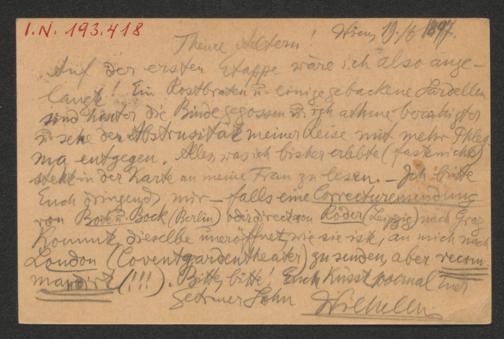 I.N. 193.418
Theure Aeltern! Wien, 19./6 1897.
Auf der ersten Etappe wäre ich also ange-
langt! Ein Rostbraten u. einige gebackene Sardellen
sind hinter die Binde gegossen u. ich athme beruhigter
u. sehe der Abstrusität meiner Reise mit mehr Phleg
ma entgegen. Alles was ich bisher erlebte (fast nichts)
steht in der Karte an meine Frau zu lesen. – Ich bitte
Euch dringend, mir – falls eine Correctursendung
von Bock & Bock (Berlin) oder direct von Röder (Leipzig) nach Graz
kommt, dieselbe uneröffnet, wie sie ist, an mich nach
London (Coventgardentheater) zu senden, aber recom
mandirt (!!!). Bitte, bitte! Euch küsst 1000mal Euer
getreuer Sohn Wilhelm